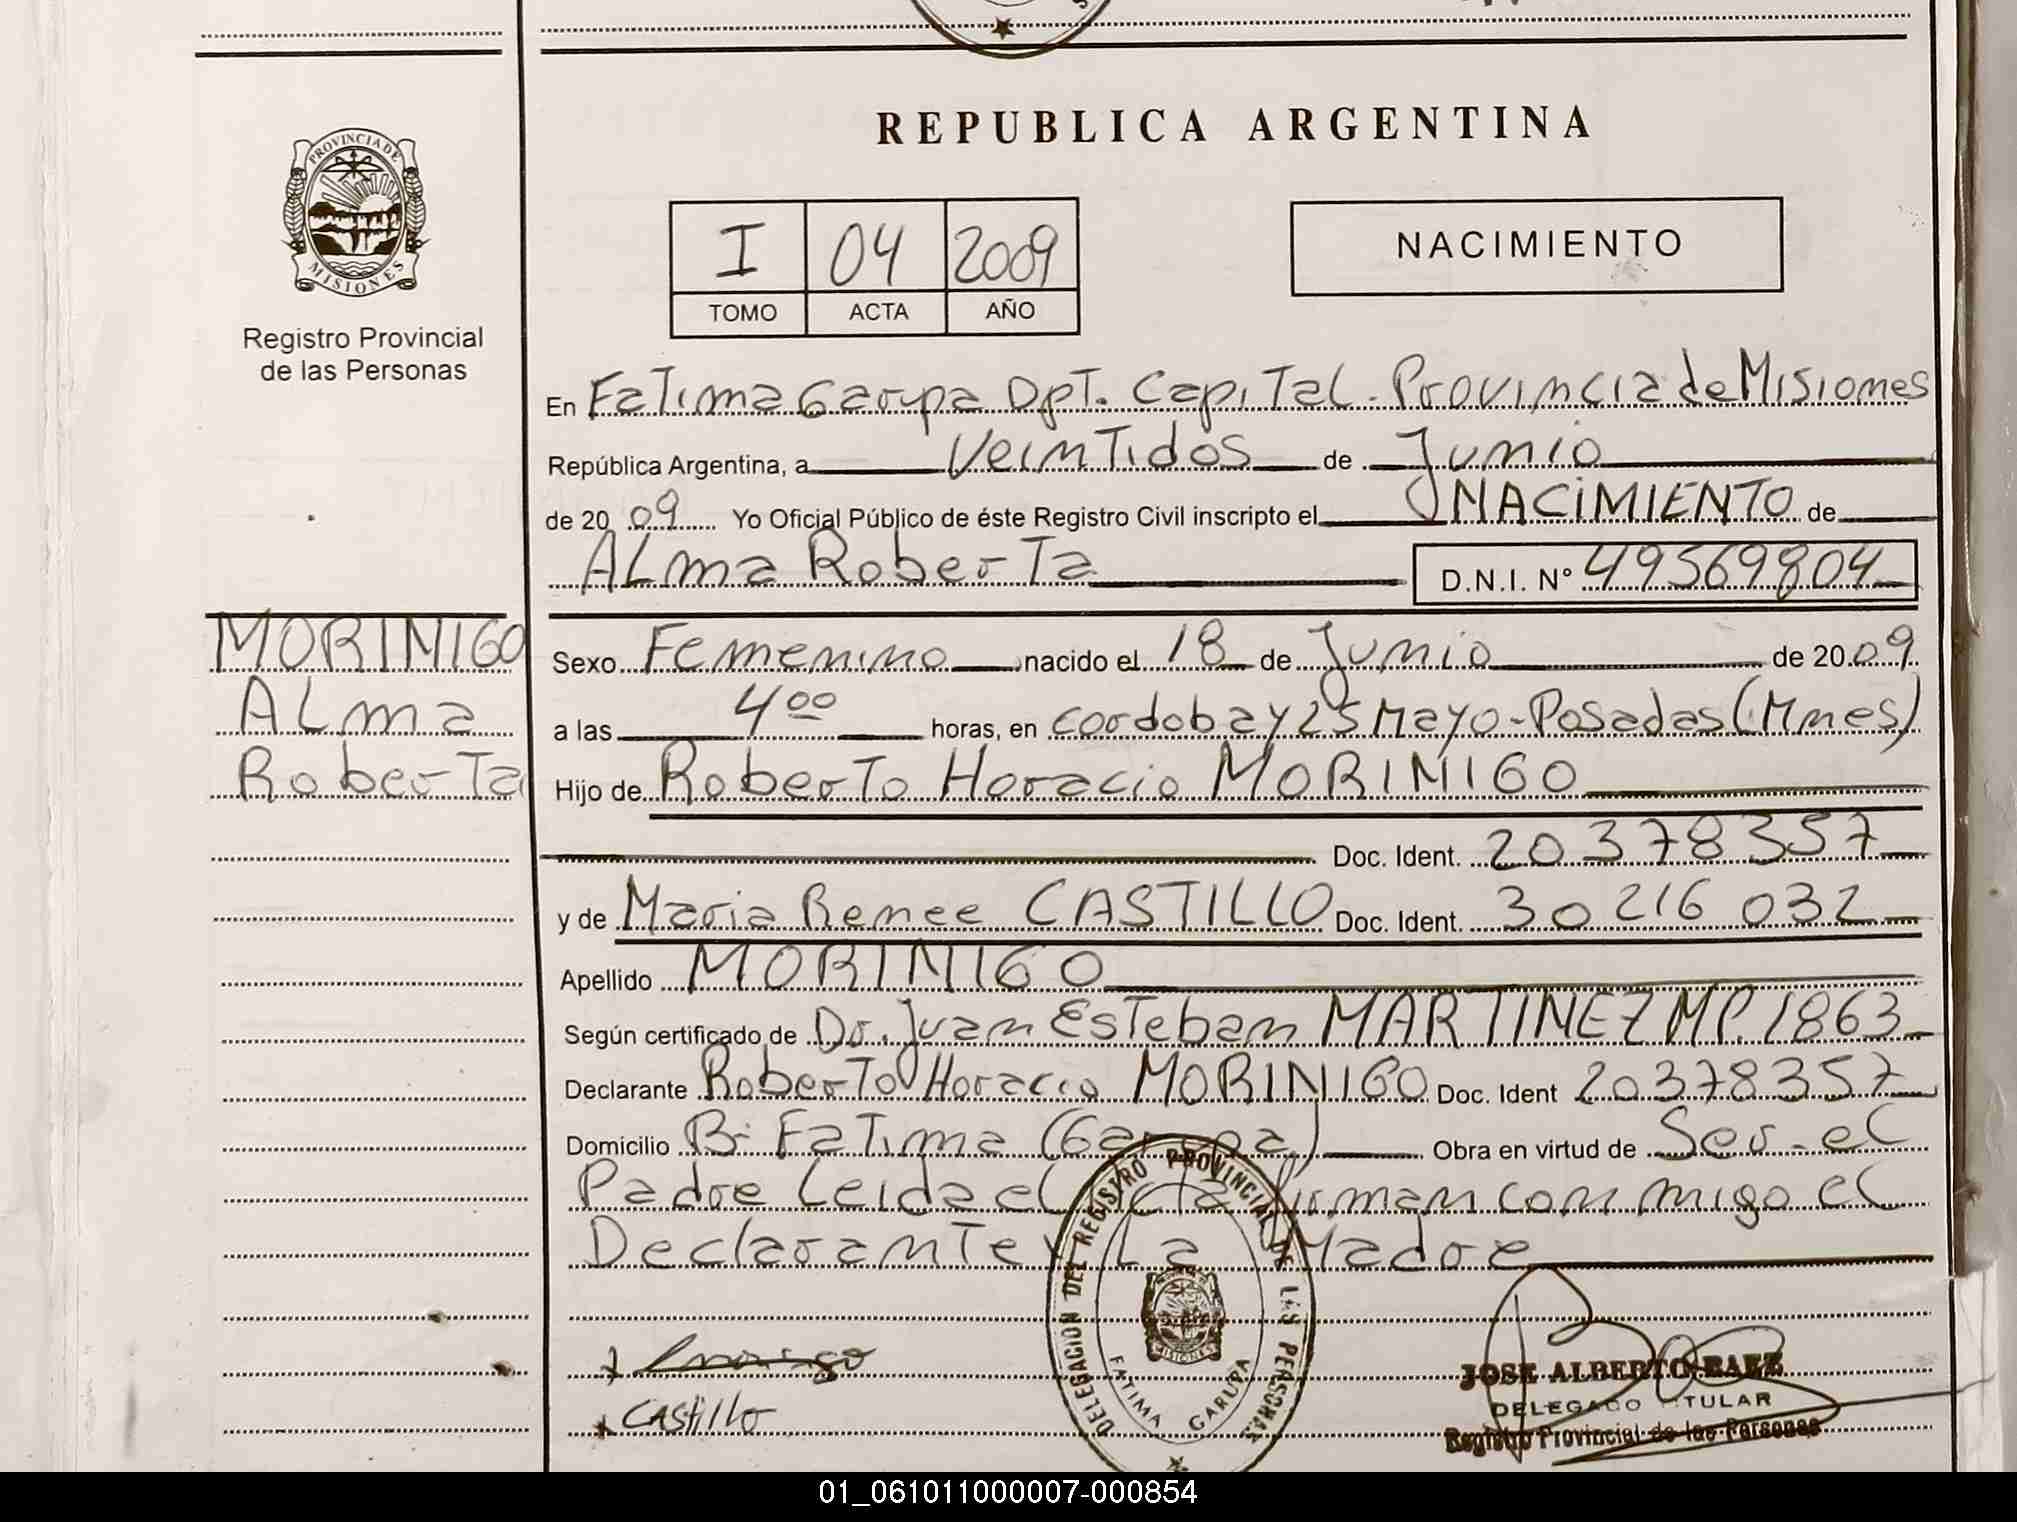 REPUBLICA ARGENTINA
PROVINCIA DE
MISIONES
Registro Provincial
de las Personas
I 04 2009
TOMO ACTA AÑO
NACIMIENTO
En Fatima Garupa Dpt. Capital - Provincia de Misiones
República Argentina, a Veintidos de Junio
de 20 09 Yo Oficial Público de éste Registro Civil inscripto el NACIMIENTO de
Alma Roberta D.N.I. N° 49569804
MORINIGO
Alma
Roberta
Sexo Femenino nacido el 18 de Junio de 20 09
a las 4 00 horas, en Cordoba y 25 Mayo - Posadas (Mnes)
Hijo de Roberto Horacio MORINIGO
Doc. Ident. 20378357
y de Maria Renee CASTILLO Doc. Ident. 30 216 032
Apellido MORINIGO
Según certificado de Dr. Juan Esteban MARTINEZ MP. 1863
Declarante Roberto Horacio MORINIGO Doc. Ident 20378357
Domicilio B: Fatima (Garupa) Obra en virtud de Ser el
Padre Leida el acta firman conmigo el
Declarante y La Madre
DELEGACION DEL REGISTRO PROVINCIAL DE LAS PERSONAS
FATIMA GARUPA
MISIONES
Castillo
JOSE ALBERTO BAEZ
DELEGADO TITULAR
Registro Provincial de las Personas
01_061011000007-000854